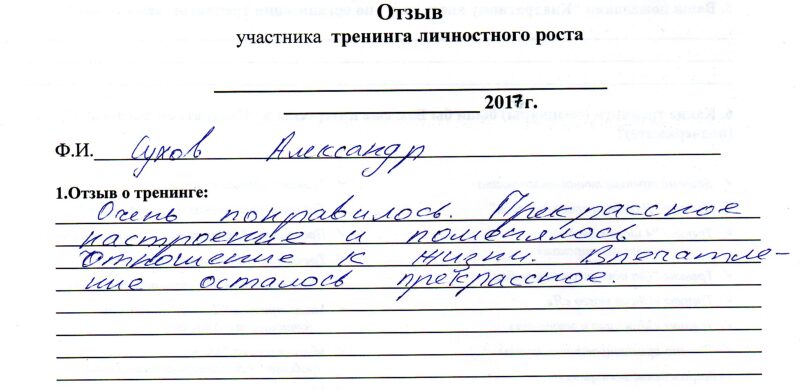 Отзыв
участника тренинга личностного роста
2017г.
Ф.И. Сухов Александр
1.Отзыв о тренинге:
Очень понравилось. Прекрассное
настроение и поменялось
отношение к жизни. Впечатле-
ние осталось прекрассное.